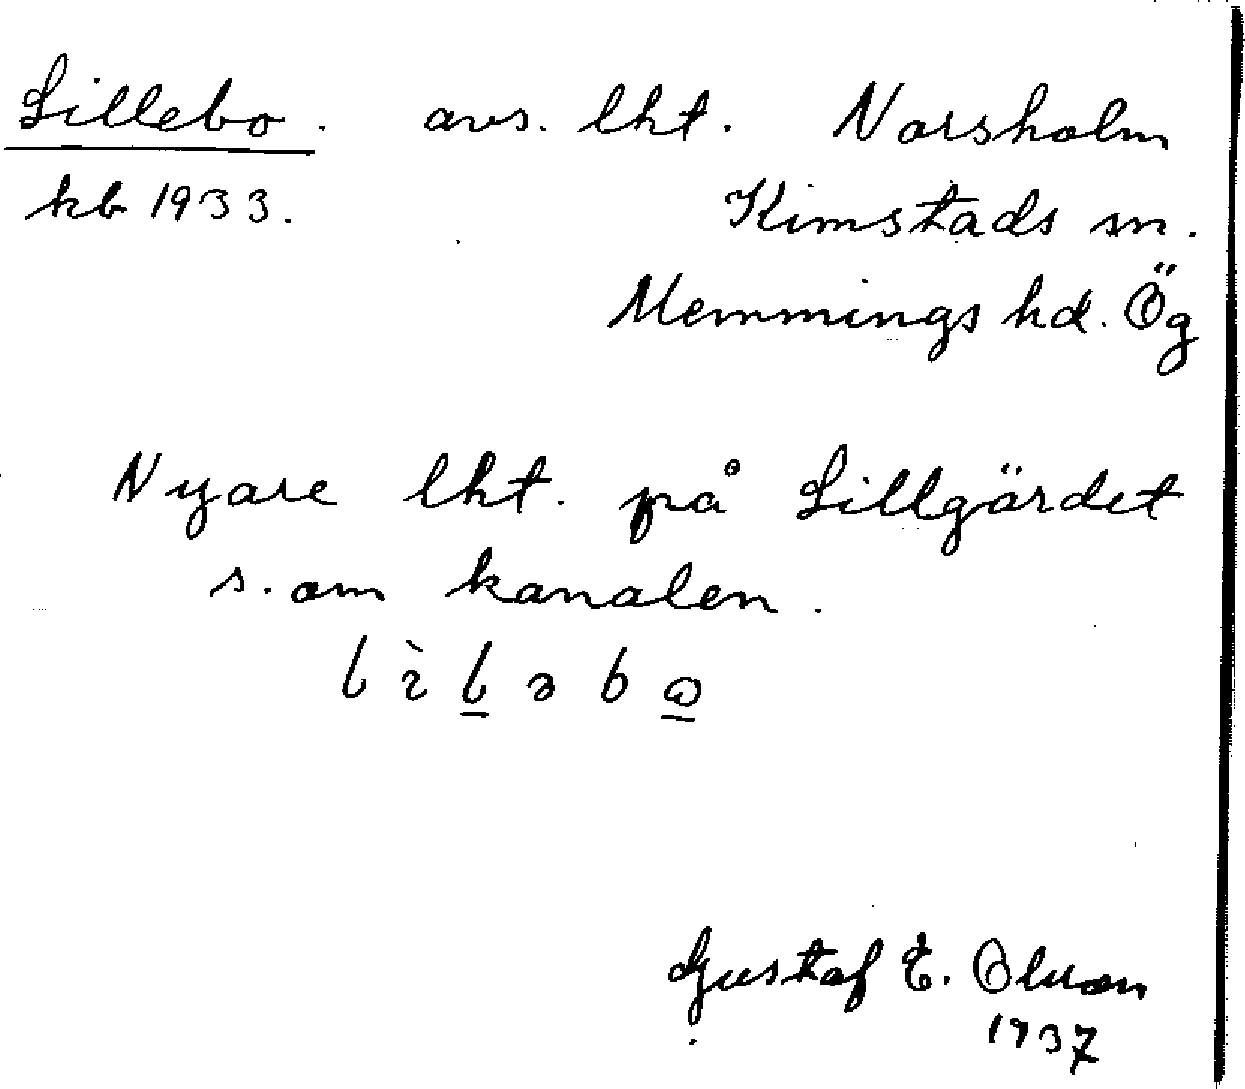 Lillebo. avs. lht. Norsholm
kb 1933. Kimstads sn.
Memmings hd. Ög
Nyare lht. på Lillgärdet
s. om kanalen.
Gustaf E. Olsson
1937